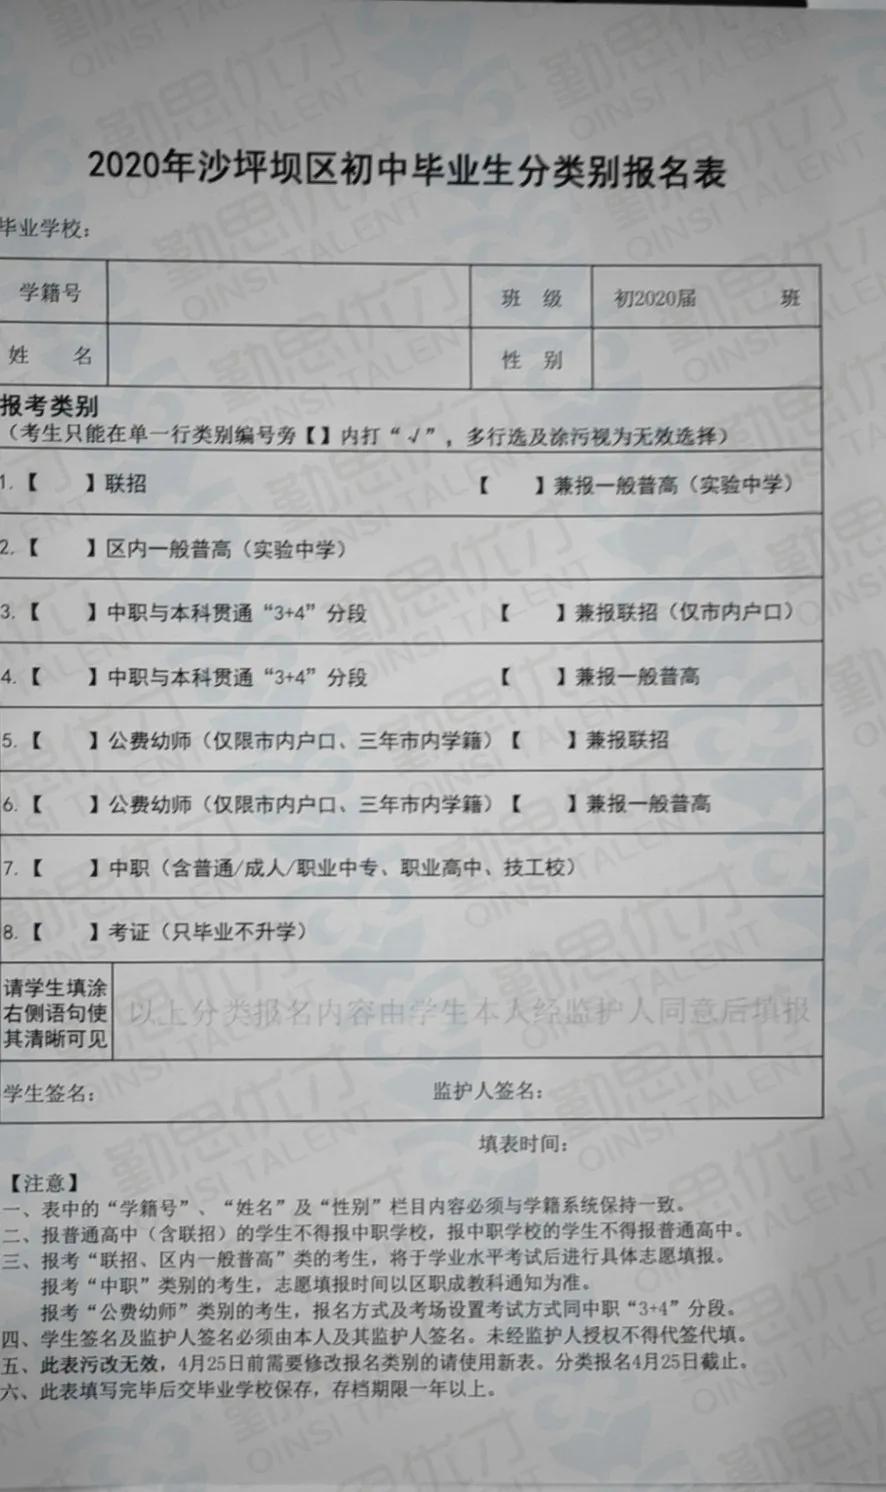 2020年沙坪坝区初中毕业生分类别报名表
毕业学校：
学籍号 班 级 初2020届 班
姓 名 性 别
报考类别
（考生只能在单一行类别编号旁【】内打“√”，多行选及涂污视为无效选择）
1.【 】联招 【 】兼报一般普高（实验中学）
2.【 】区内一般普高（实验中学）
3.【 】中职与本科贯通“3+4”分段 【 】兼报联招（仅市内户口）
4.【 】中职与本科贯通“3+4”分段 【 】兼报一般普高
5.【 】公费幼师（仅限市内户口、三年市内学籍）【 】兼报联招
6.【 】公费幼师（仅限市内户口、三年市内学籍）【 】兼报一般普高
7.【 】中职（含普通/成人/职业中专、职业高中、技工校）
8.【 】考证（只毕业不升学）
请学生填涂
右侧语句使
其清晰可见
以上分类报名内容由学生本人经监护人同意后填报
学生签名： 监护人签名：
填表时间：
【注意】
一、表中的“学籍号”、“姓名”及“性别”栏目内容必须与学籍系统保持一致。
二、报普通高中（含联招）的学生不得报中职学校，报中职学校的学生不得报普通高中。
三、报考“联招、区内一般普高”类的考生，将于学业水平考试后进行具体志愿填报。
报考“中职”类别的考生，志愿填报时间以区职成教科通知为准。
报考“公费幼师”类别的考生，报名方式及考场设置考试方式同中职“3+4”分段。
四、学生签名及监护人签名必须由本人及其监护人签名。未经监护人授权不得代签代填。
五、此表污改无效，4月25日前需要修改报名类别的请使用新表。分类报名4月25日截止。
六、此表填写完毕后交毕业学校保存，存档期限一年以上。
勤思优才
QINSI TALENT